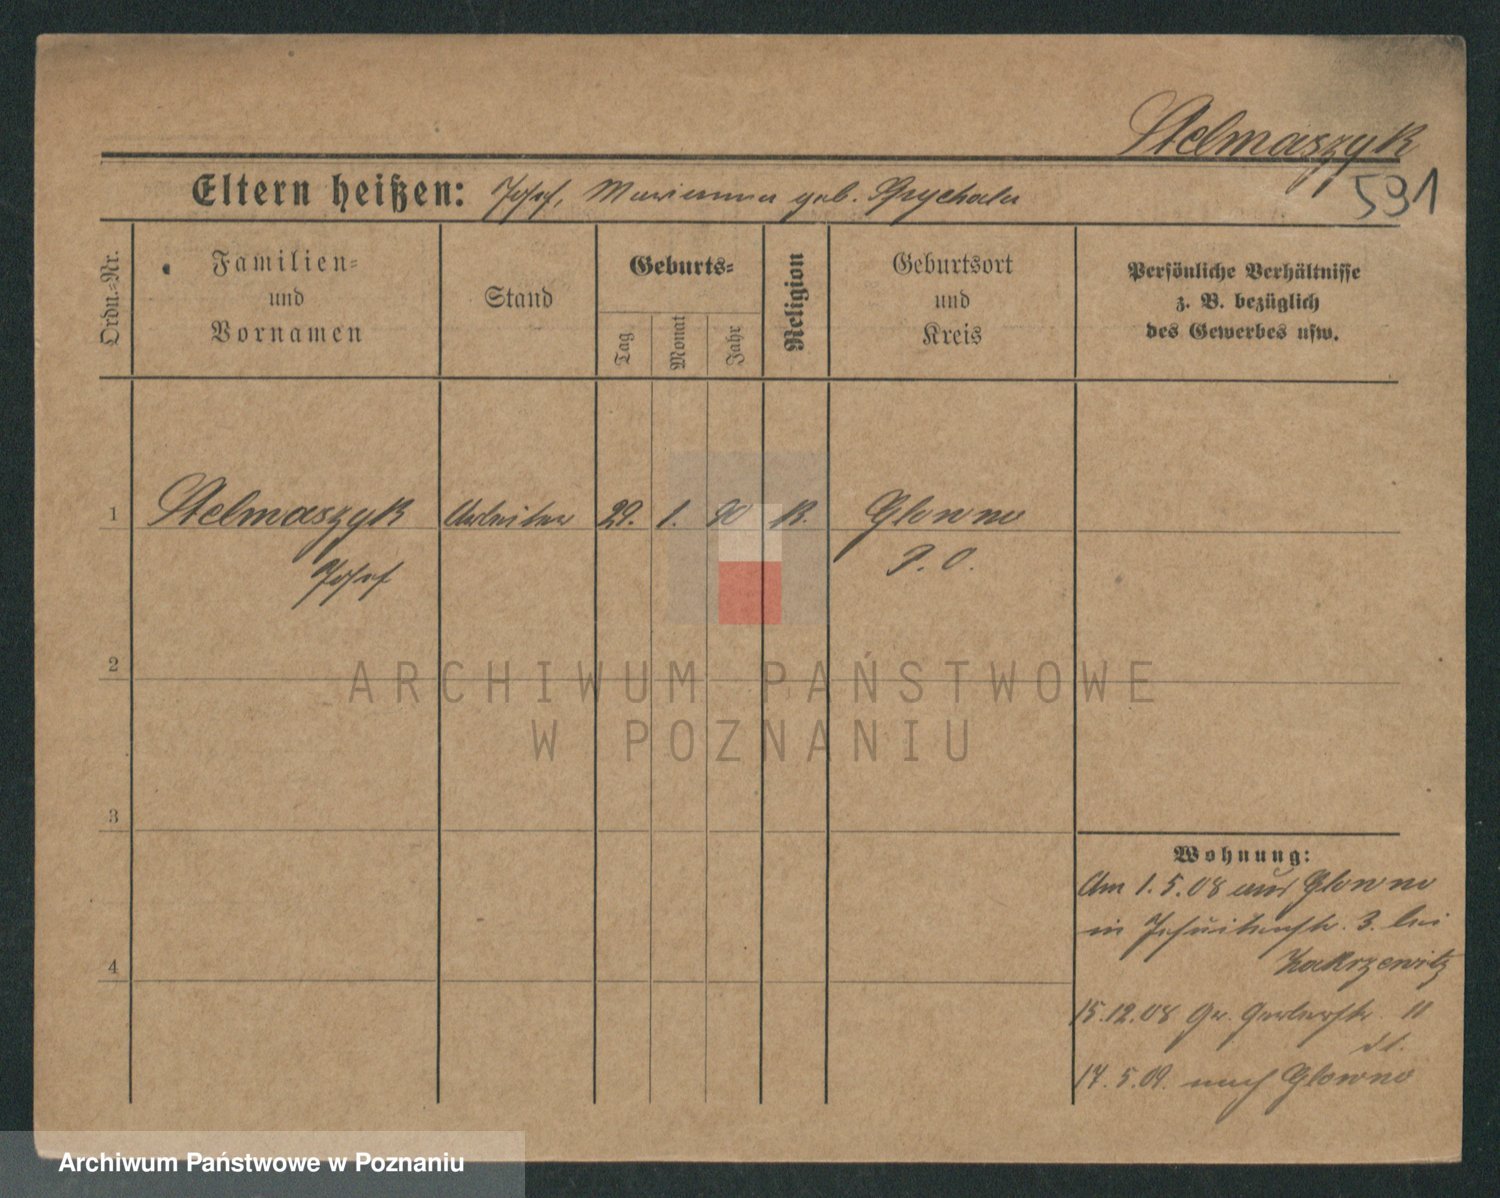 Stelmaszyk
591
Eltern heißen: Josef, Marianna geb. Spychala
Ordn.-Nr.
Familien-
und
Vornamen
Stand
Geburts-
Tag
Monat
Jahr
Religion
Geburtsort
und
Kreis
Persönliche Verhältnisse
z. B. bezüglich
des Gewerbes usw.
1 Stelmaszyk Arbeiter 29. 1. 90 K. Glowno
Josef P. O.
2
3
4
Wohnung:
Am 1.5.08 aus Glowno
in Jesuitenstr. 3. bei
Zakrzewitz
15.12.08 Gr. Gerberstr. 11
14.5.09. nach Glowno
ARCHIWUM PAŃSTWOWE
W POZNANIU
Archiwum Państwowe w Poznaniu